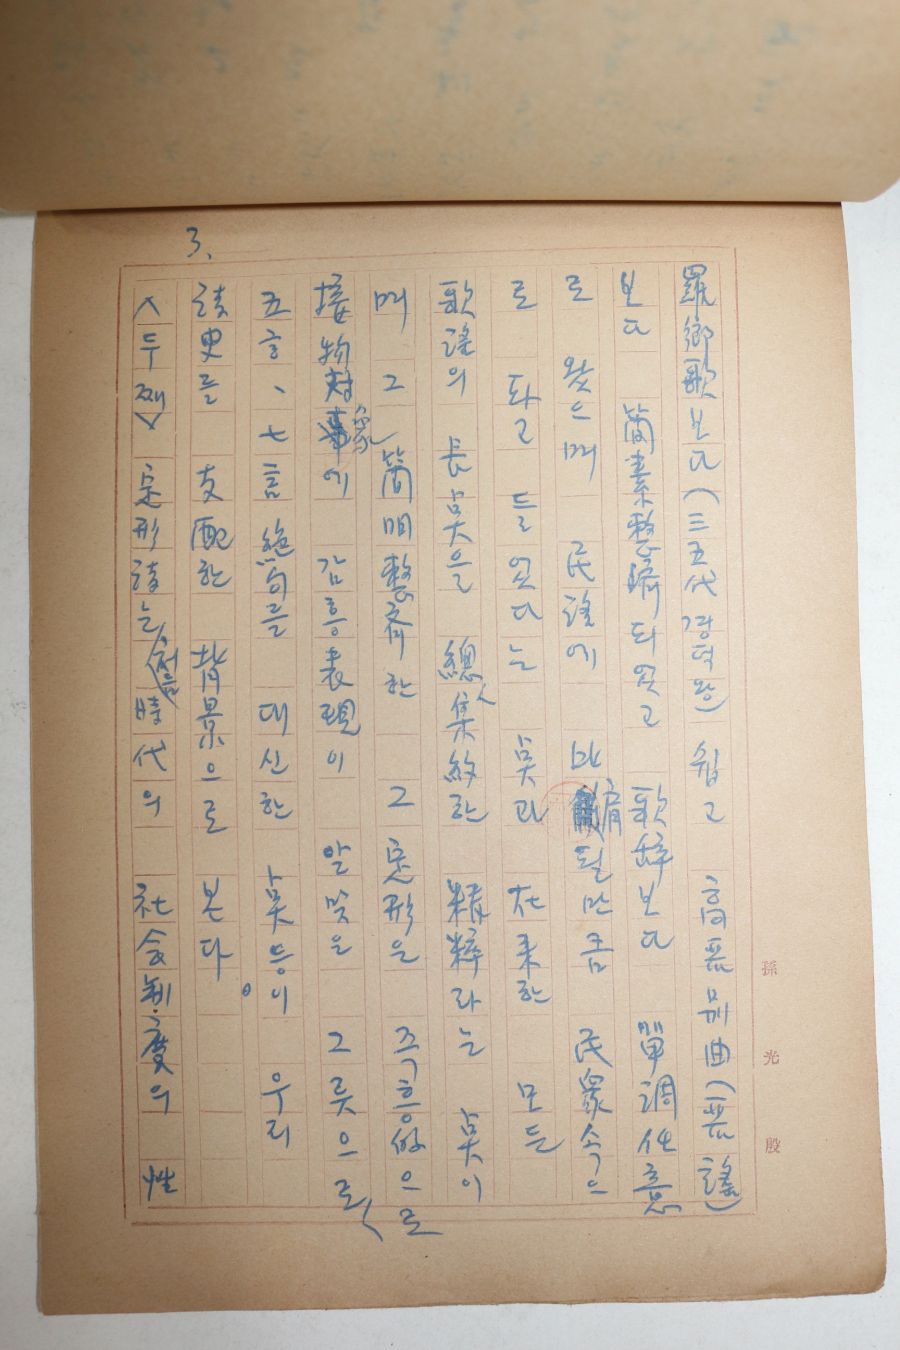 3.
羅鄕歌보다(三五代 경덕왕) 쉽고 高麗別曲(麗謠)
보다 簡素整齊되였고 歌辭보다 單調任意
로 왔으며 民謠에 比肩될만큼 民衆속으
로 파고 들었다는 點과 在來한 모든
歌謠의 長點을 總集約한 精粹라는 點이
며 그 簡明整齊한 그 定形은 즉흥的으로
接物対象에 감흥表現이 알맞은 그릇으로
五言、七言絶句를 대신한 點등이 우리
詩史를 支配한 背景으로 본다。
<두째> 定形詩는 時代의 社会制度의 性
孫光殷